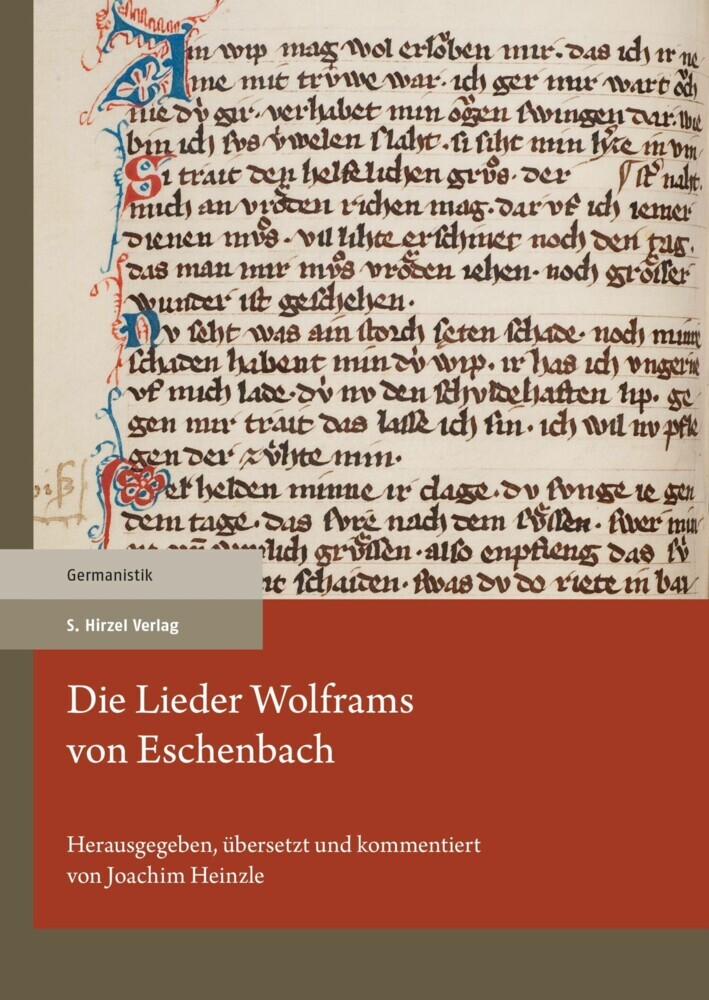 Ain wip mag wol erlŏben mir · das ich ir ne
me mit trv́we war · ich ger mir wart ŏch
nie dv́ gir · verhabet min ŏgen swingen dar · wie
bin ich sus v́welen slaht · si siht min h͛ze in vin
Si trait den helflichen grůs · der st͛ naht ·
mich an vrŏ́den richen mag · dar vf ich iemer
dienen můs · vil lihte erschinet noch den tag ·
das man mir můs vrŏ́den iehen · noch grŏ́sser
wunder ist geschehen ·
Nv seht was ain storch seten schade · noch minre
schaden habent min dv́ wip · ir has ich vngerne
vf mich lade · dv́ nv den schuldehaften lip · ge
gen mir trait das lasse ich sin · ich wil nv pfle
gen der zv́hte min ·
Der helden minne ir clage · dv sunge ie gen
dem tage · das sure nach dem sůssen · swer min
lich grůssen · also enpfieng das sv́
schaiden · swas dv do riete in bai
Germanistik
S. Hirzel Verlag
Die Lieder Wolframs
von Eschenbach
Herausgegeben, übersetzt und kommentiert
von Joachim Heinzle